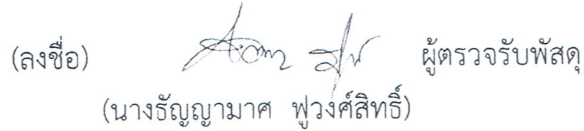 (ลงชื่อ) ผู้ตรวจรับพัสดุ
(นางธัญญามาศ ฟูวงศ์สิทธิ์)